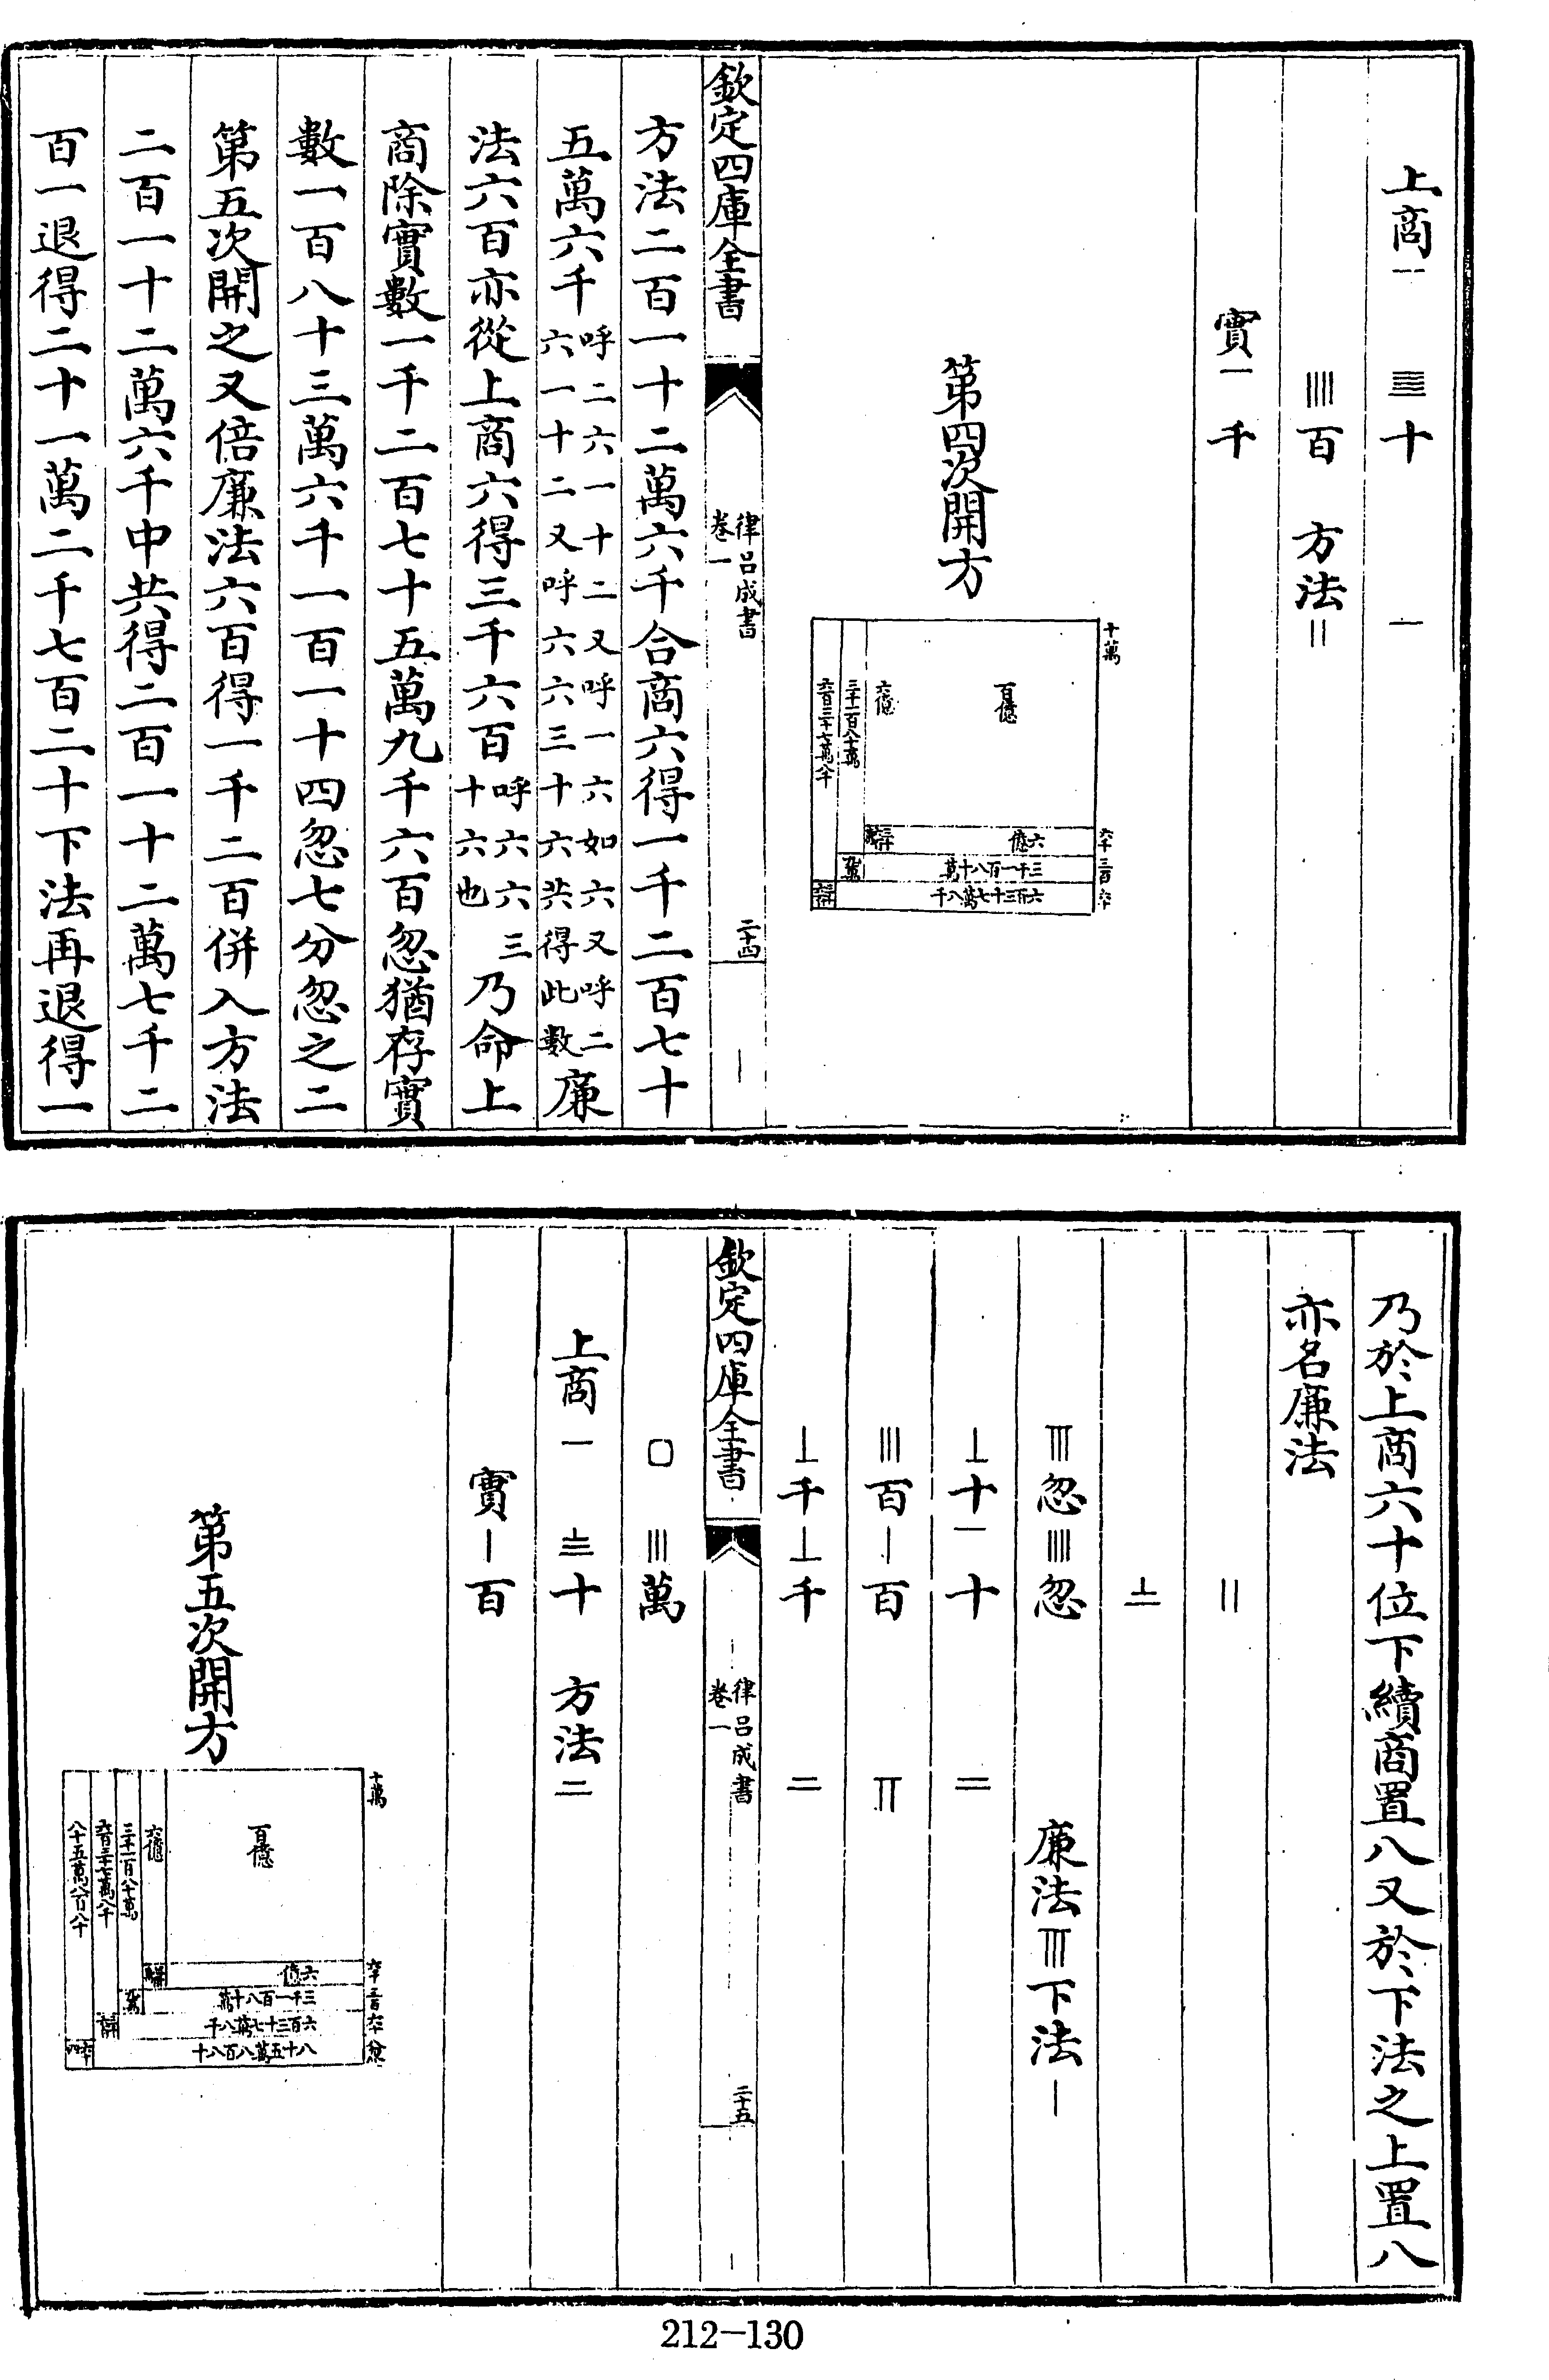 上商一　𝍬十　一
||||百　方法||
實一千
第四次開方
十萬
百億
六億
三千一百八十萬
六百三十七萬八千
六億
三千一百八十萬
六百三十七萬八千
欽定四庫全書
律呂成書
卷一
二十四
方法二百一十二萬六千合商六得一千二百七十
五萬六千呼二六一十二又呼一六如六又呼二
六一十二又呼六六三十六共得此數廉
法六百亦從上商六得三千六百呼六六三
十六也乃命上
商除實數一千二百七十五萬九千六百忽猶存實
數一百八十三萬六千一百一十四忽七分忽之二
第五次開之又倍廉法六百得一千二百併入方法
二百一十二萬六千中共得二百一十二萬七千二
百一退得二十一萬二千七百二十下法再退得一
乃於上商六十位下續商置八又於下法之上置八
亦名廉法
||
〨
𝍫忽||||忽　廉法𝍫下法|
⊥十一十　二
|||百|百　〢
⊥千⊥千　二
欽定四庫全書
律呂成書
卷一
二十五
口　|||萬
上商一　〨十　方法二
實|百
第五次開方
十萬
百億
六億
三千一百八十萬
六百三十七萬八千
八十五萬八百八十
六億
三千一百八十萬
六百三十七萬八千
八十五萬八百八十
212-130